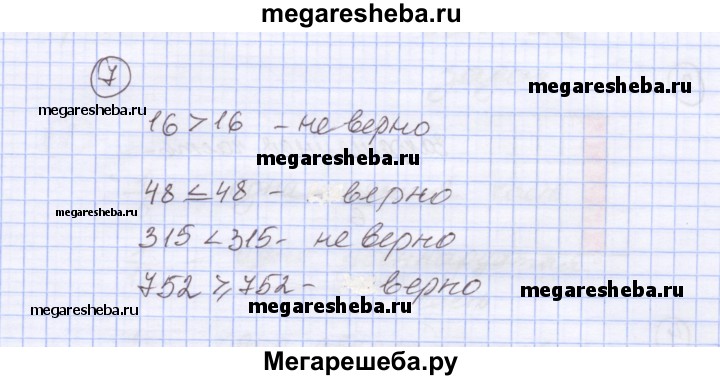 megaresheba.ru
7
megaresheba.ru
16 > 16 - не верно
megaresheba.ru
48 ≤ 48 - верно
megaresheba.ru
315 < 315 - не верно
752 ⩾ 752 - верно
megaresheba.ru
megaresheba.ru
megaresheba.ru
Мегарешеба.ру